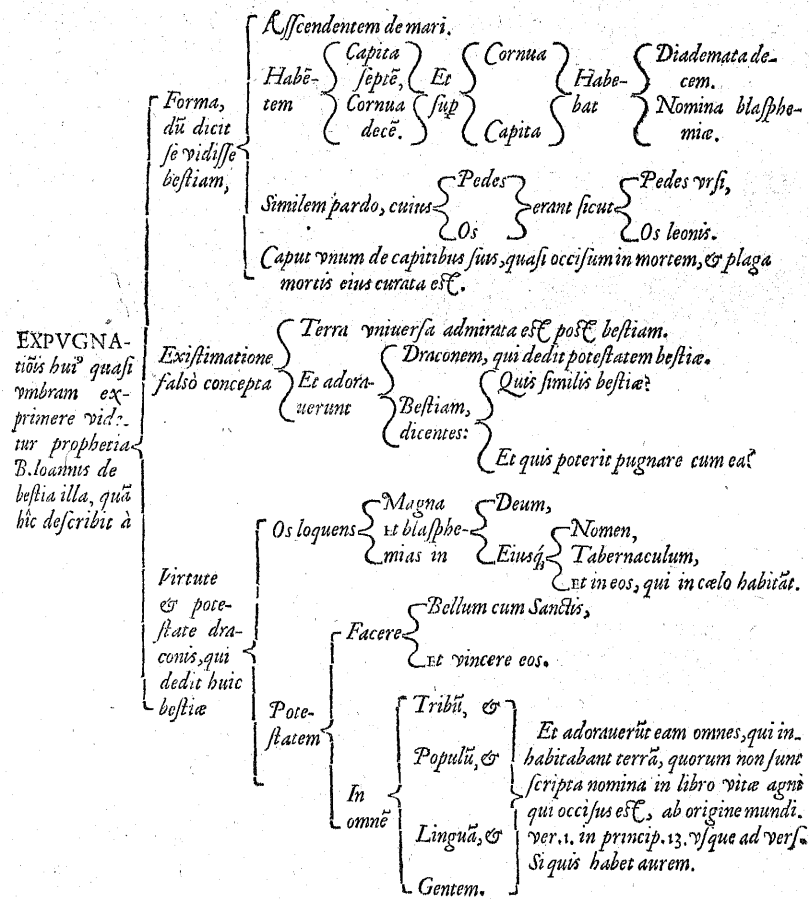 EXPVGNA-
tiõis huiꝰ quasi
vmbram ex-
primere vide-
tur prophetia
B. Ioannis de
bestia illa, quã
hîc describit à
Forma,
dũ dicit
se vidisse
bestiam,
Asscendentem de mari.
Habẽ-
tem
Capita
septẽ,
Cornua
decẽ.
Et
sup̃
Cornua
Capita
Habe-
bat
Diademata de-
cem.
Nomina blasphe-
miæ.
Similem pardo, cuius
Pedes
Os
erant sicut
Pedes vrsi,
Os leonis.
Caput vnum de capitibus suis, quasi occisum in mortem, & plaga
mortis eius curata est.
Existimatione
falsò concepta
Terra vniuersa admirata est post bestiam.
Et adora-
uerunt
Draconem, qui dedit potestatem bestiæ.
Bestiam,
dicentes:
Quis similis bestiæ?
Et quis poterit pugnare cum ea?
Virtute
& pote-
state dra-
conis, qui
dedit huic
bestiæ
Os loquens
Magna
Et blasphe-
mias in
Deum,
Eiusq́;
Nomen,
Tabernaculum,
Et in eos, qui in cælo habitãt.
Pote-
statem
Facere
Bellum cum Sanctis,
Et vincere eos.
In
omnẽ
Tribũ, &
Populũ, &
Linguã, &
Gentem.
Et adorauerũt eam omnes, qui in-
habitabant terrã, quorum non sunt
scripta nomina in libro vitæ agni
qui occisus est, ab origine mundi.
ver. 1. in princip. 13. vsque ad vers.
Si quis habet aurem.